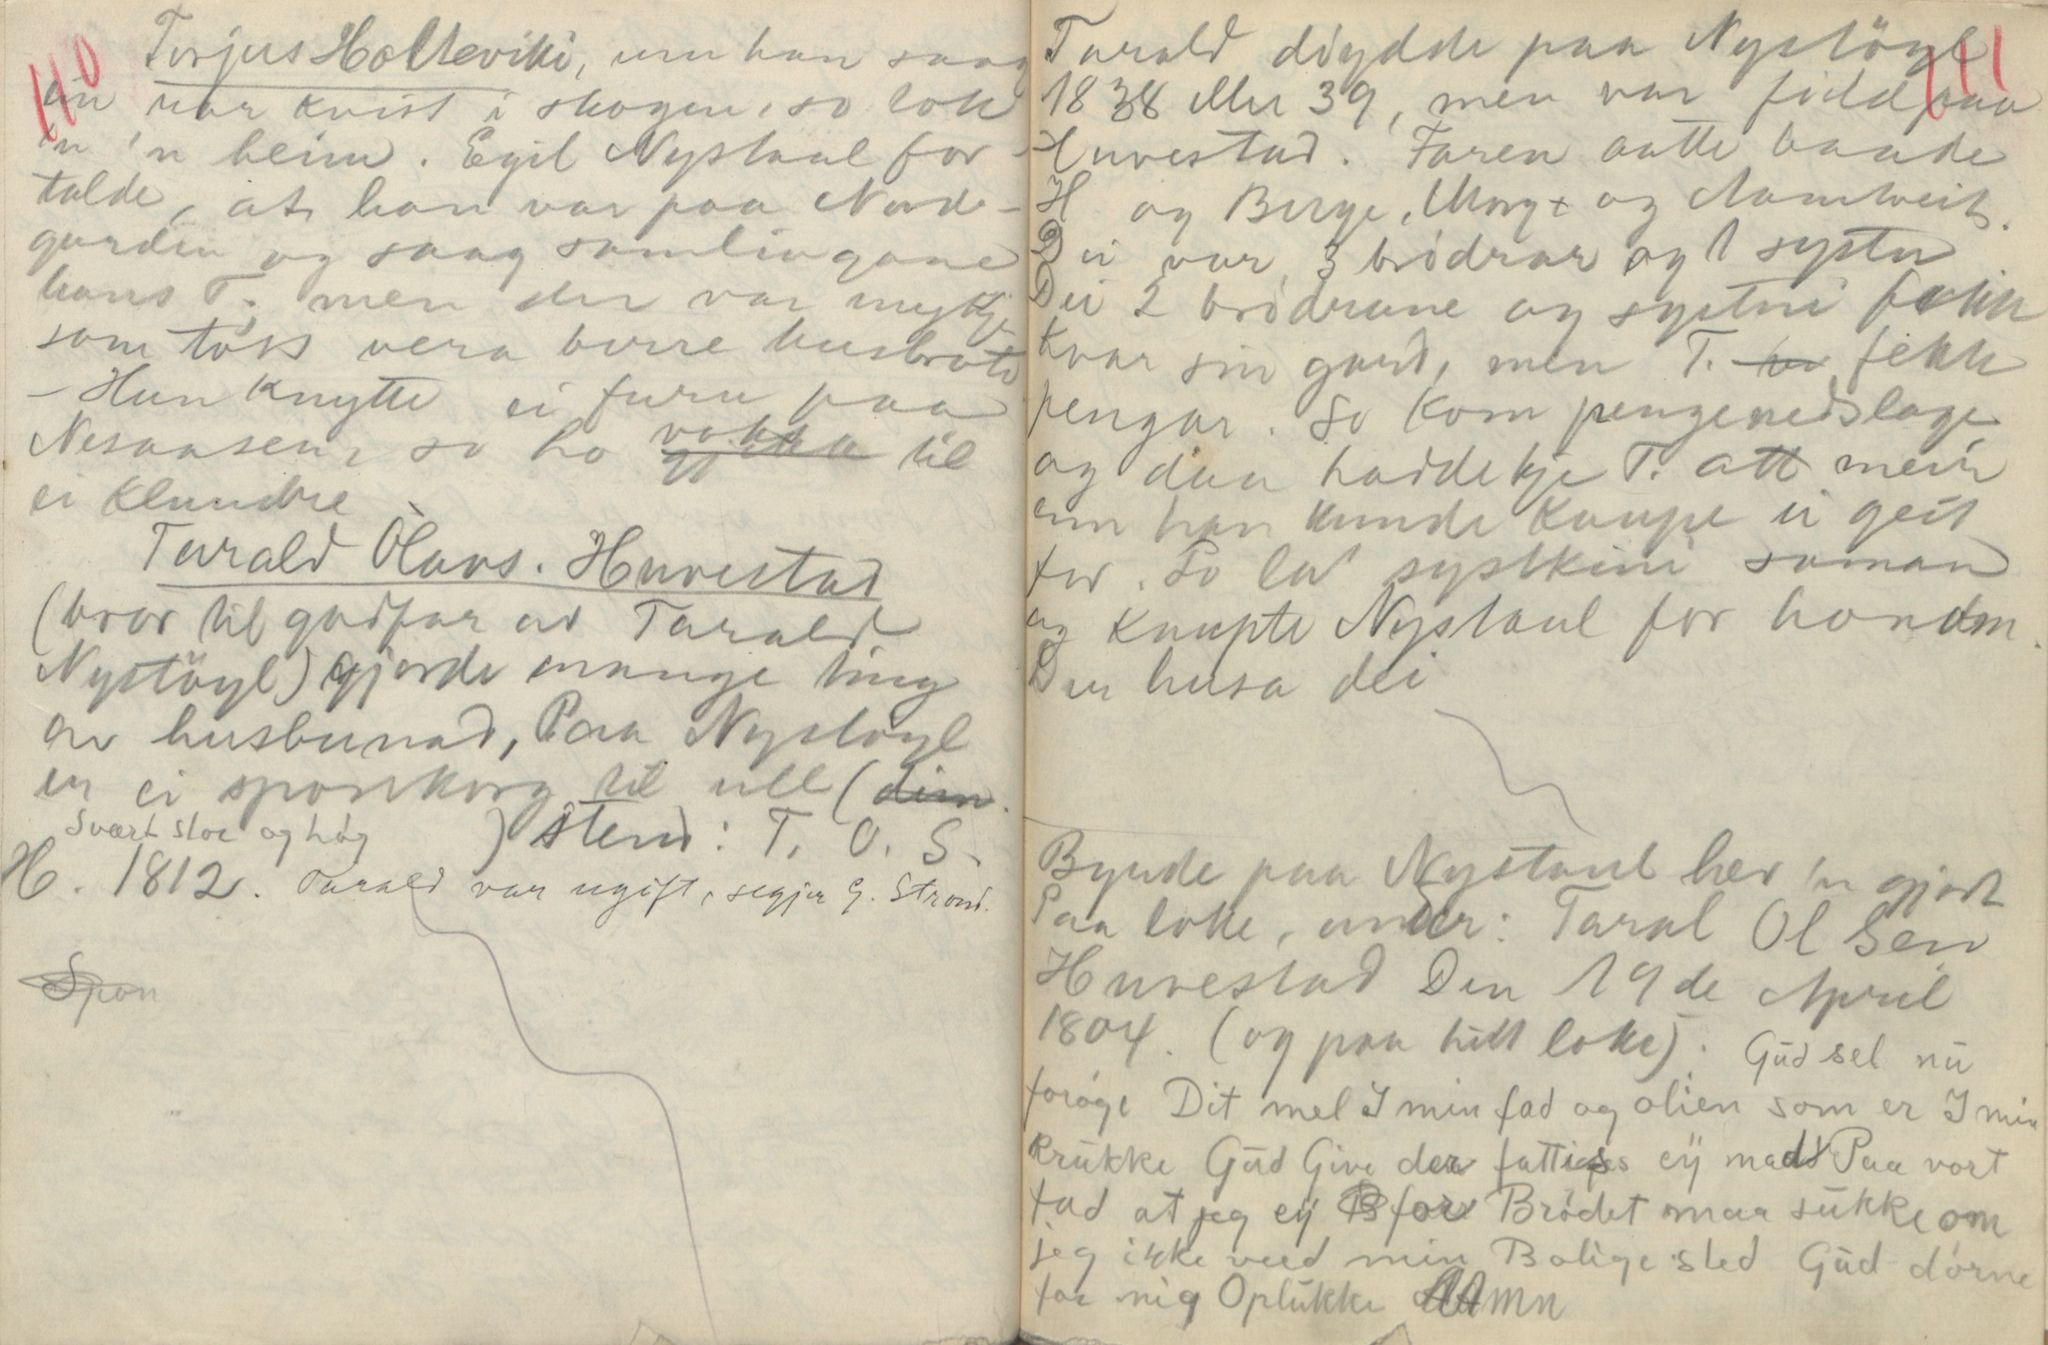 110
Torjus Holteviki, um han saag
ein rar kvist i skogen, so tok
'n 'n heim. Egil Nystaul for-
talde, at han var paa Nord-
garden og saag samlingane
hans T. men der var mykje
som tóks vera berre husbrot
- Han knytte ei furu paa
Nesaasen, so ho vaks til
ei klundre
Tarald Ólavs. Huvestad
(bror til godfar av Tarald
Nystöyl) gjorde mange ting
av husbunad, Paa Nystöyl
er ei sponkorg til ull (dim.
svært stor og høg ) stend: T. O. S.
H. 1812. Tarald var ugift, segjer G. Strond.
Spon
111
Tarald döydde paa Nystöyl
1838 eller 39, men var född paa
Huvestad. Faren aatte baade
H og Berge, Morg+ og Aamtveit.
Dei var 3 brödrar og 1 syster
Dei 2 brödrane og systri fekk
kvar sin gard, men T. fekk
pengar. So kom pengenedslage
og daa hadde kje T. att meir
enn han kunde kaupe ei geit
for. So la' systkini saman
og kaupte Nystaul for honom.
Der husa dei
Byrde paa Nystaul her 'n gjort
Paa loke, under: Taral Ol Sen
Huvestad Den 19de April
1804. (og paa hitt loke): Gud sel nu
forøge Dit mel I min fad og olien som er I min
krukke Gud Give den fattiges eÿ mads Paa vort
fad at jeg eÿ for Brødet maa sukke om
jeg ikke veed min Bolige sted Gud dørne
for mig Oplukke AMn